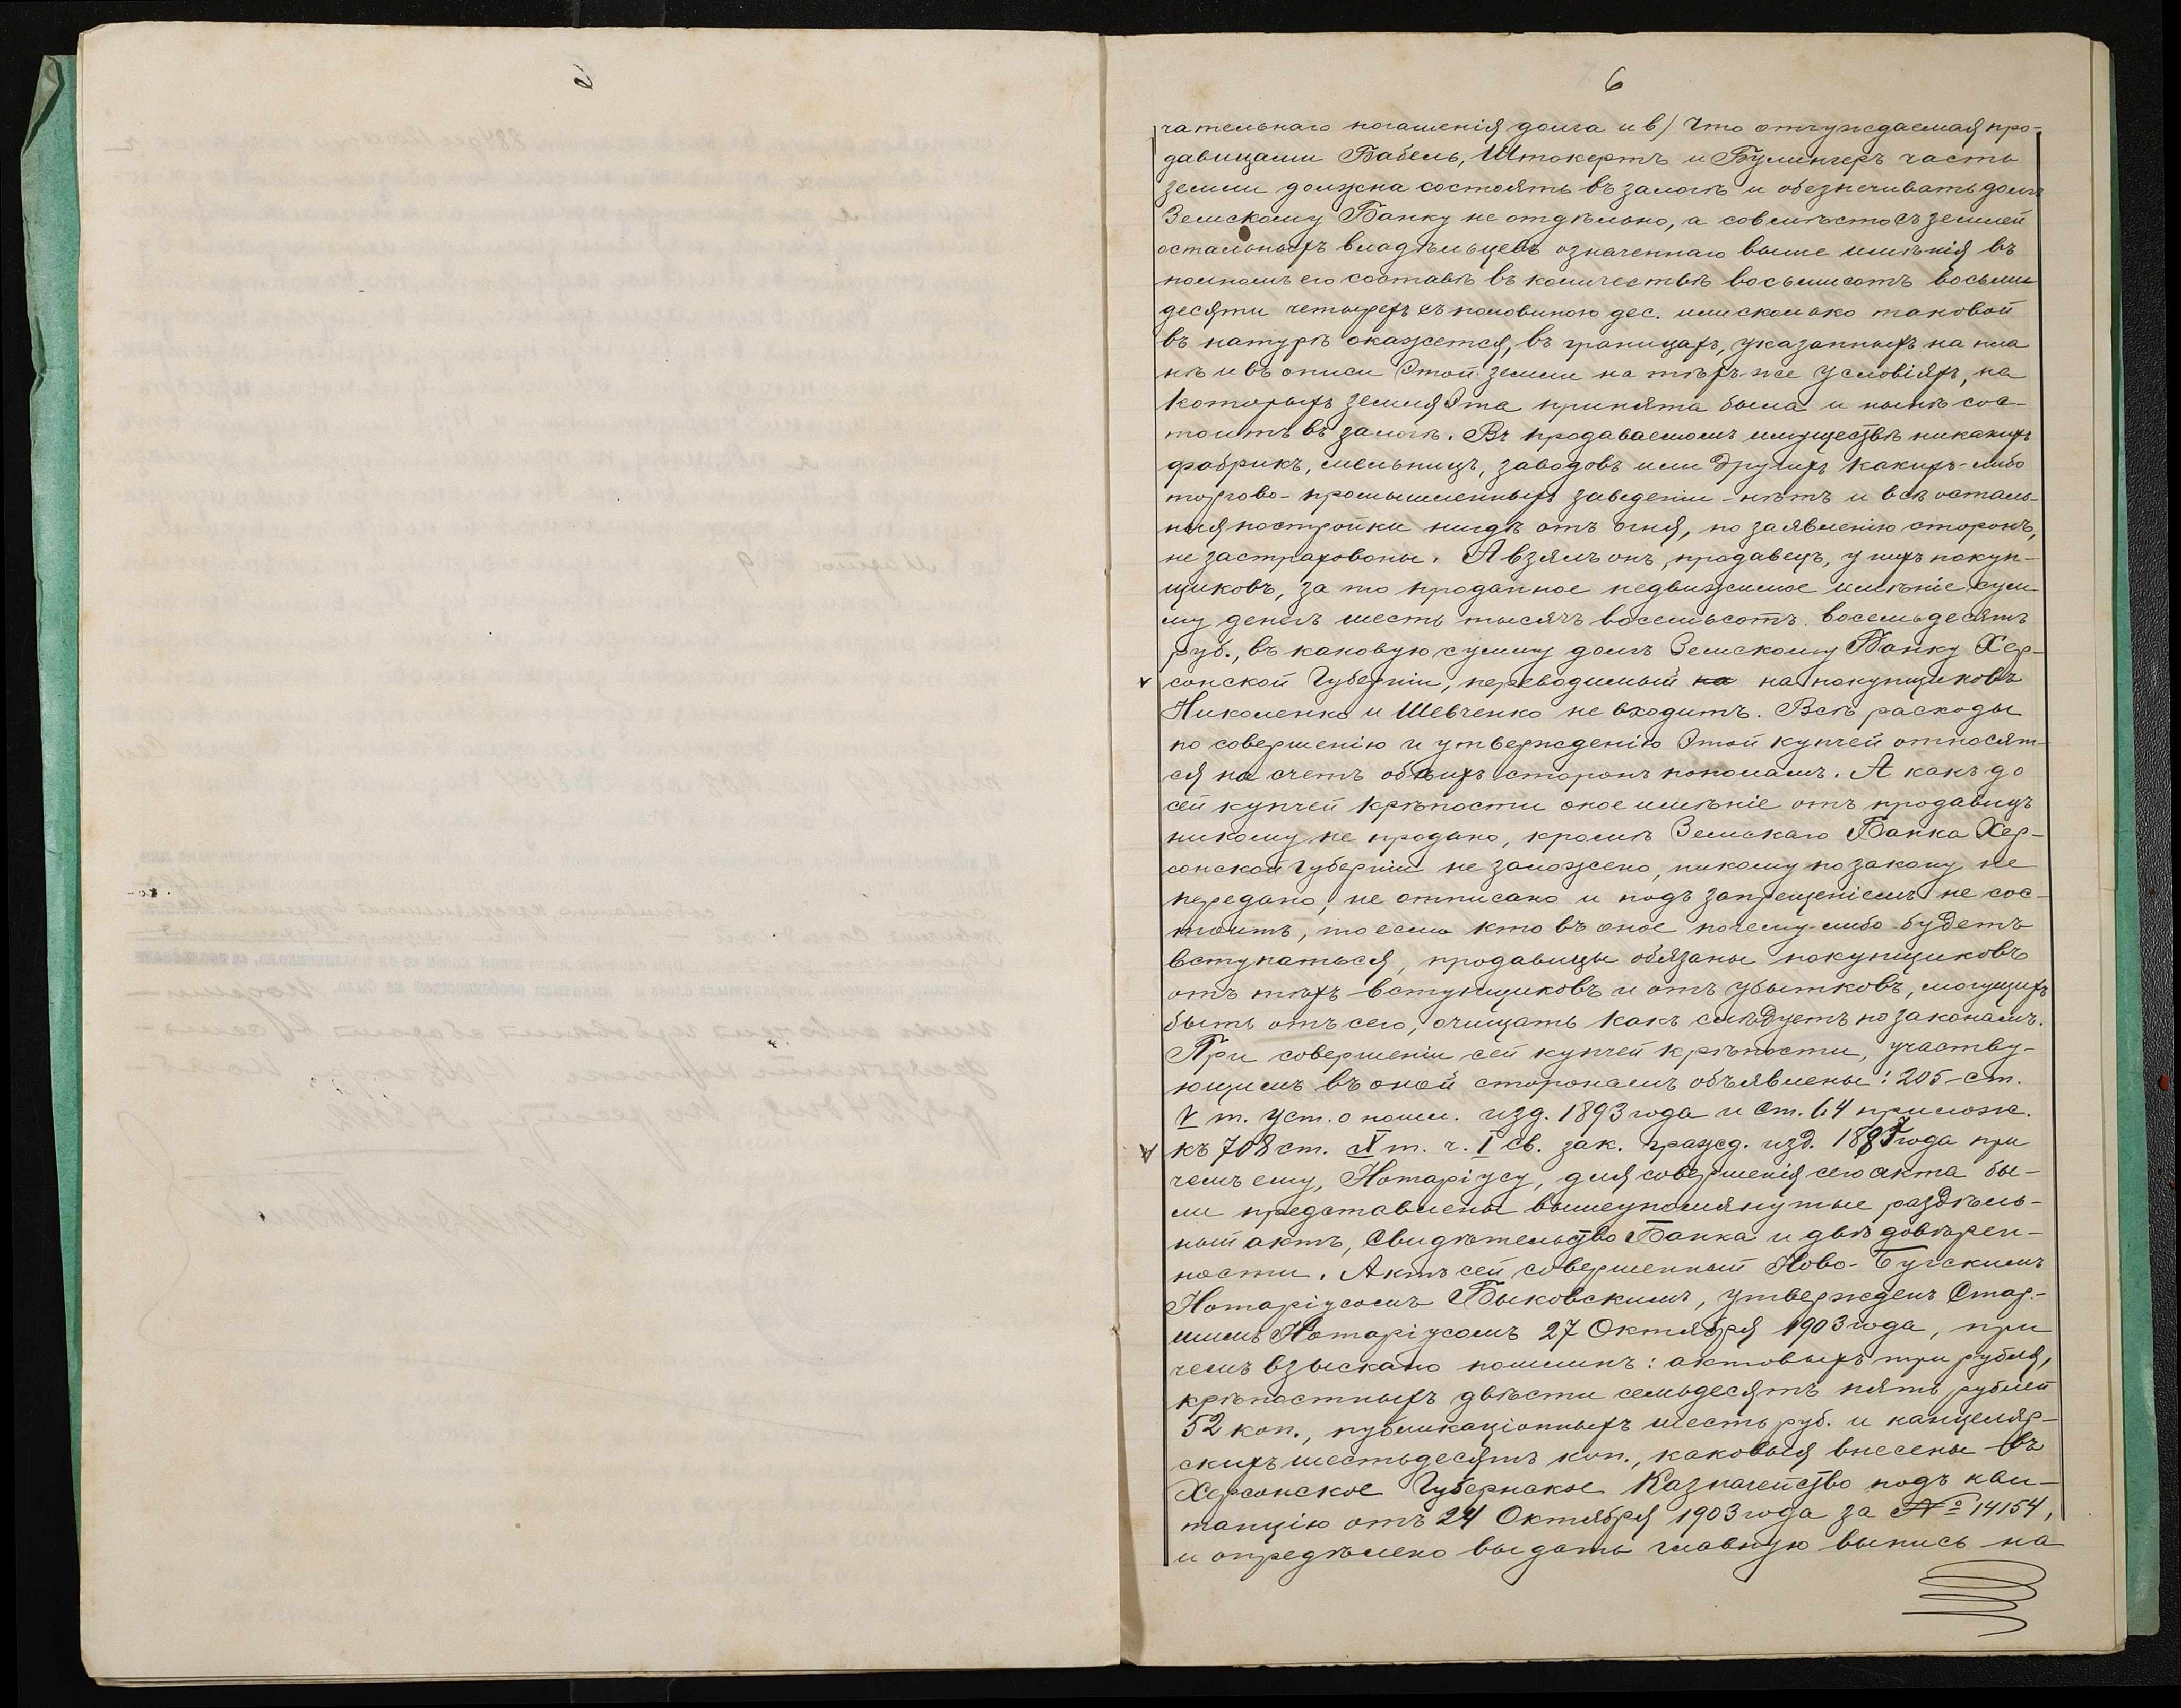 6
чательнаго погашенія долга и в) Что отчуждаемая про-
давицами Бабель, Штокертъ и Булингеръ часть
земли должна состоять въ залогѣ и обезпечивать долгъ
Земскому Банку не отдѣльно, а совмѣстно съ землей
остальныхъ владѣльцевъ означеннаго выше имѣнія въ
полномъ его составѣ въ количествѣ восьмисотъ восьми
десяти четырехъ съ половиною дес. или сколько таковой
въ натурѣ окажется, въ границахъ, указанныхъ на пла
нѣ и въ описи этой земли на тѣхъ-же условіяхъ, на
которыхъ земля эта принята была и нынѣ сос-
тоитъ въ залогѣ. Въ продаваемомъ имуществѣ никакихъ
фабрикъ, мельницъ, заводовъ или другихъ какихъ-либо
торгово-промышленныхъ заведеніи-нѣтъ и всѣ осталь-
ныя постройки нигдѣ отъ огня, по заявленію сторонъ,
не застрахованы. А взялъ онъ, продавецъ, у нихъ покуп-
щиковъ, за то проданное недвижимое имѣніе сум
му денегъ шесть тысячъ восемьсотъ восемьдесятъ
руб., въ каковую сумму долгъ Земскому Банку Хер-
сонской Губерніи, переводимый на на покупщиковъ
Николенко и Шевченко не входитъ. Всѣ расходы
по совершенію и утвержденію этой купчей относят-
ся на счетъ обѣихъ сторонъ пополамъ. А какъ до
сей купчей крѣпости оное имѣніе отъ продавицъ
никому не продано, кромѣ Земскаго Банка Хер-
сонской Губерніи не заложено, никому по закону не
передано, не отписано и подъ запрещеніемъ не сос-
тоитъ, то если кто въ оное почему-либо будетъ
вступаться, продавицы обязаны покупщиковъ
отъ тѣхъ вступщиковъ и отъ убытковъ, могущихъ
быть отъ сего, очищать какъ слѣдуетъ по законамъ.
При совершеніи сей купчей крѣпости, участву-
ющимъ въ оной сторонамъ объявлены: 205-ст.
V т. Уст. о пошл. изд. 1893 года и ст. 64 прилож.
къ 708 ст. X т. ч. I св. зак. гражд. изд. 1887 года при
чемъ ему, Нотаріусу, для совершенія сего акта бы-
ли представлены вышеупомянутые раздѣль-
ный актъ, свидѣтельство Банка и двѣ довѣрен-
ности. Актъ сей совершенный Ново-Бугскимъ
Нотаріусомъ Быковскимъ, утвержденъ Стар-
шимъ Нотаріусомъ 27 Октября 1903 года, при
чемъ взыскано пошлинъ: актовыхъ три рубля,
крѣпостныхъ двѣсти семьдесятъ пять рублей
52 коп., публикаціонныхъ шесть руб. и канцеляр-
скихъ шестьдесятъ коп., каковыя внесены въ
Херсонское Губернское Казначейство подъ кви-
танцію отъ 24 Октября 1903 года за № 14154,
и опредѣлено выдать главную выпись на